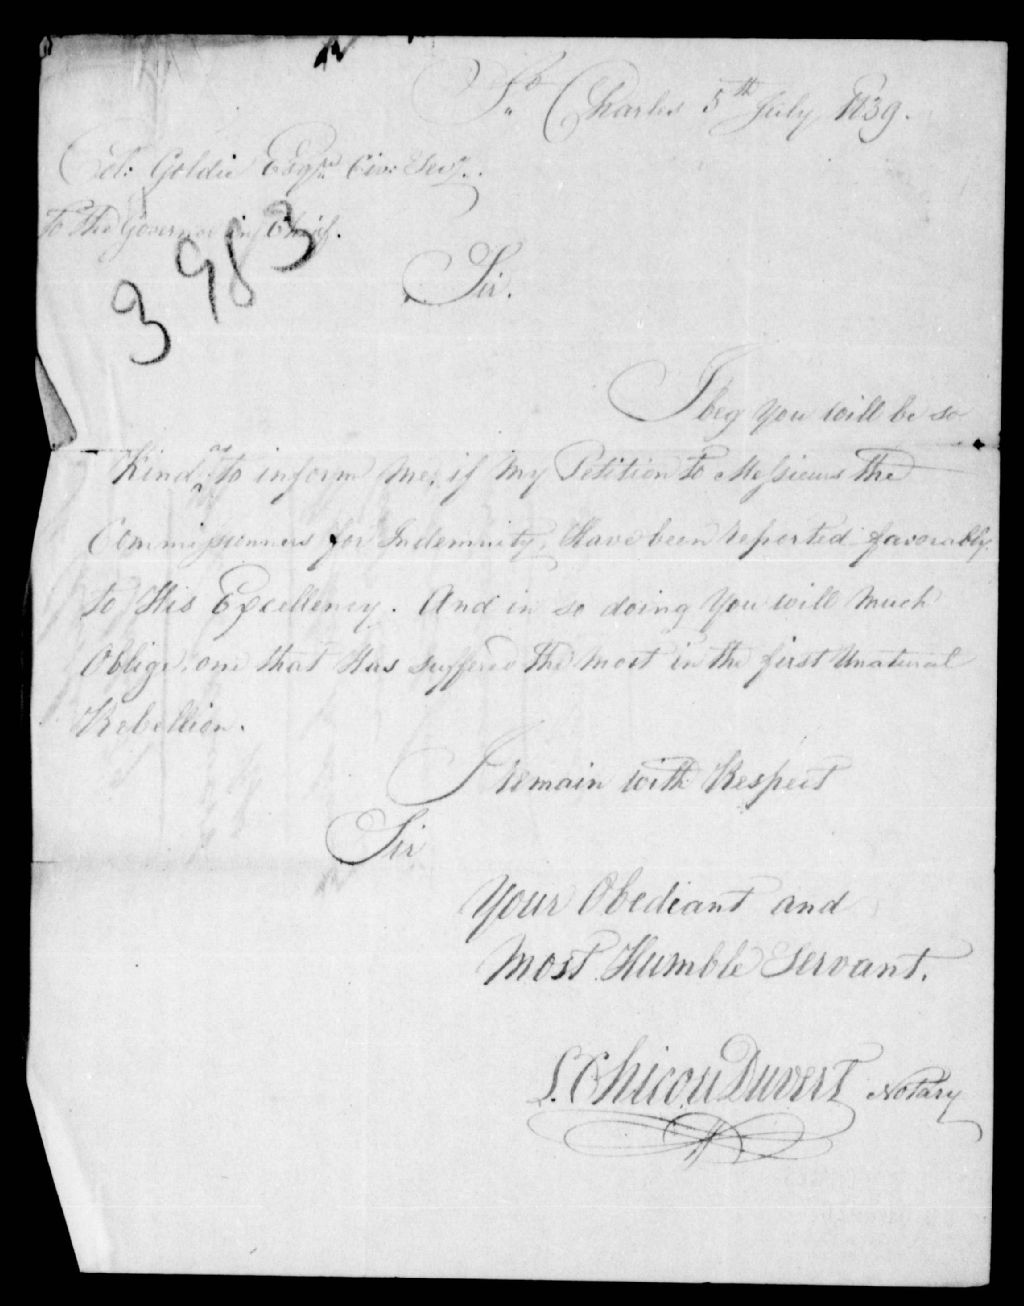 St. Charles 5th July 1839.
Col: Goldie Esqre. Civ: Secy.
To the Governor in Chief.
3983
Sir.
I beg you will be so
Kind as to inform me, if my Petition to Messieurs the
Commissionners for Indemnity, Have been reported favorably
to His Excellency. And in so doing you will much
Oblige, one that Has suffered the most in the first Unatural
Rebellion.
I remain with Respect
Sir
Your Obediant and
Most Humble Servant.
S. Chicou Duvert Notary